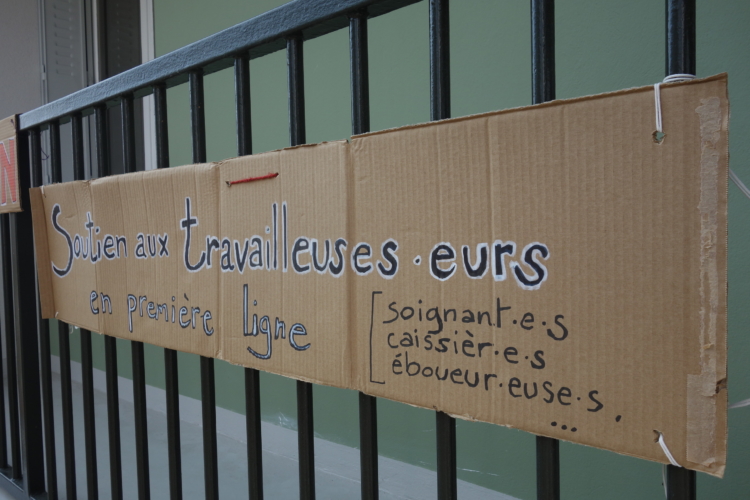 N
Soutien aux travailleuses·eurs
en première ligne
soignant·e·s
caissièr·e·s
éboueur·euse·s,
...